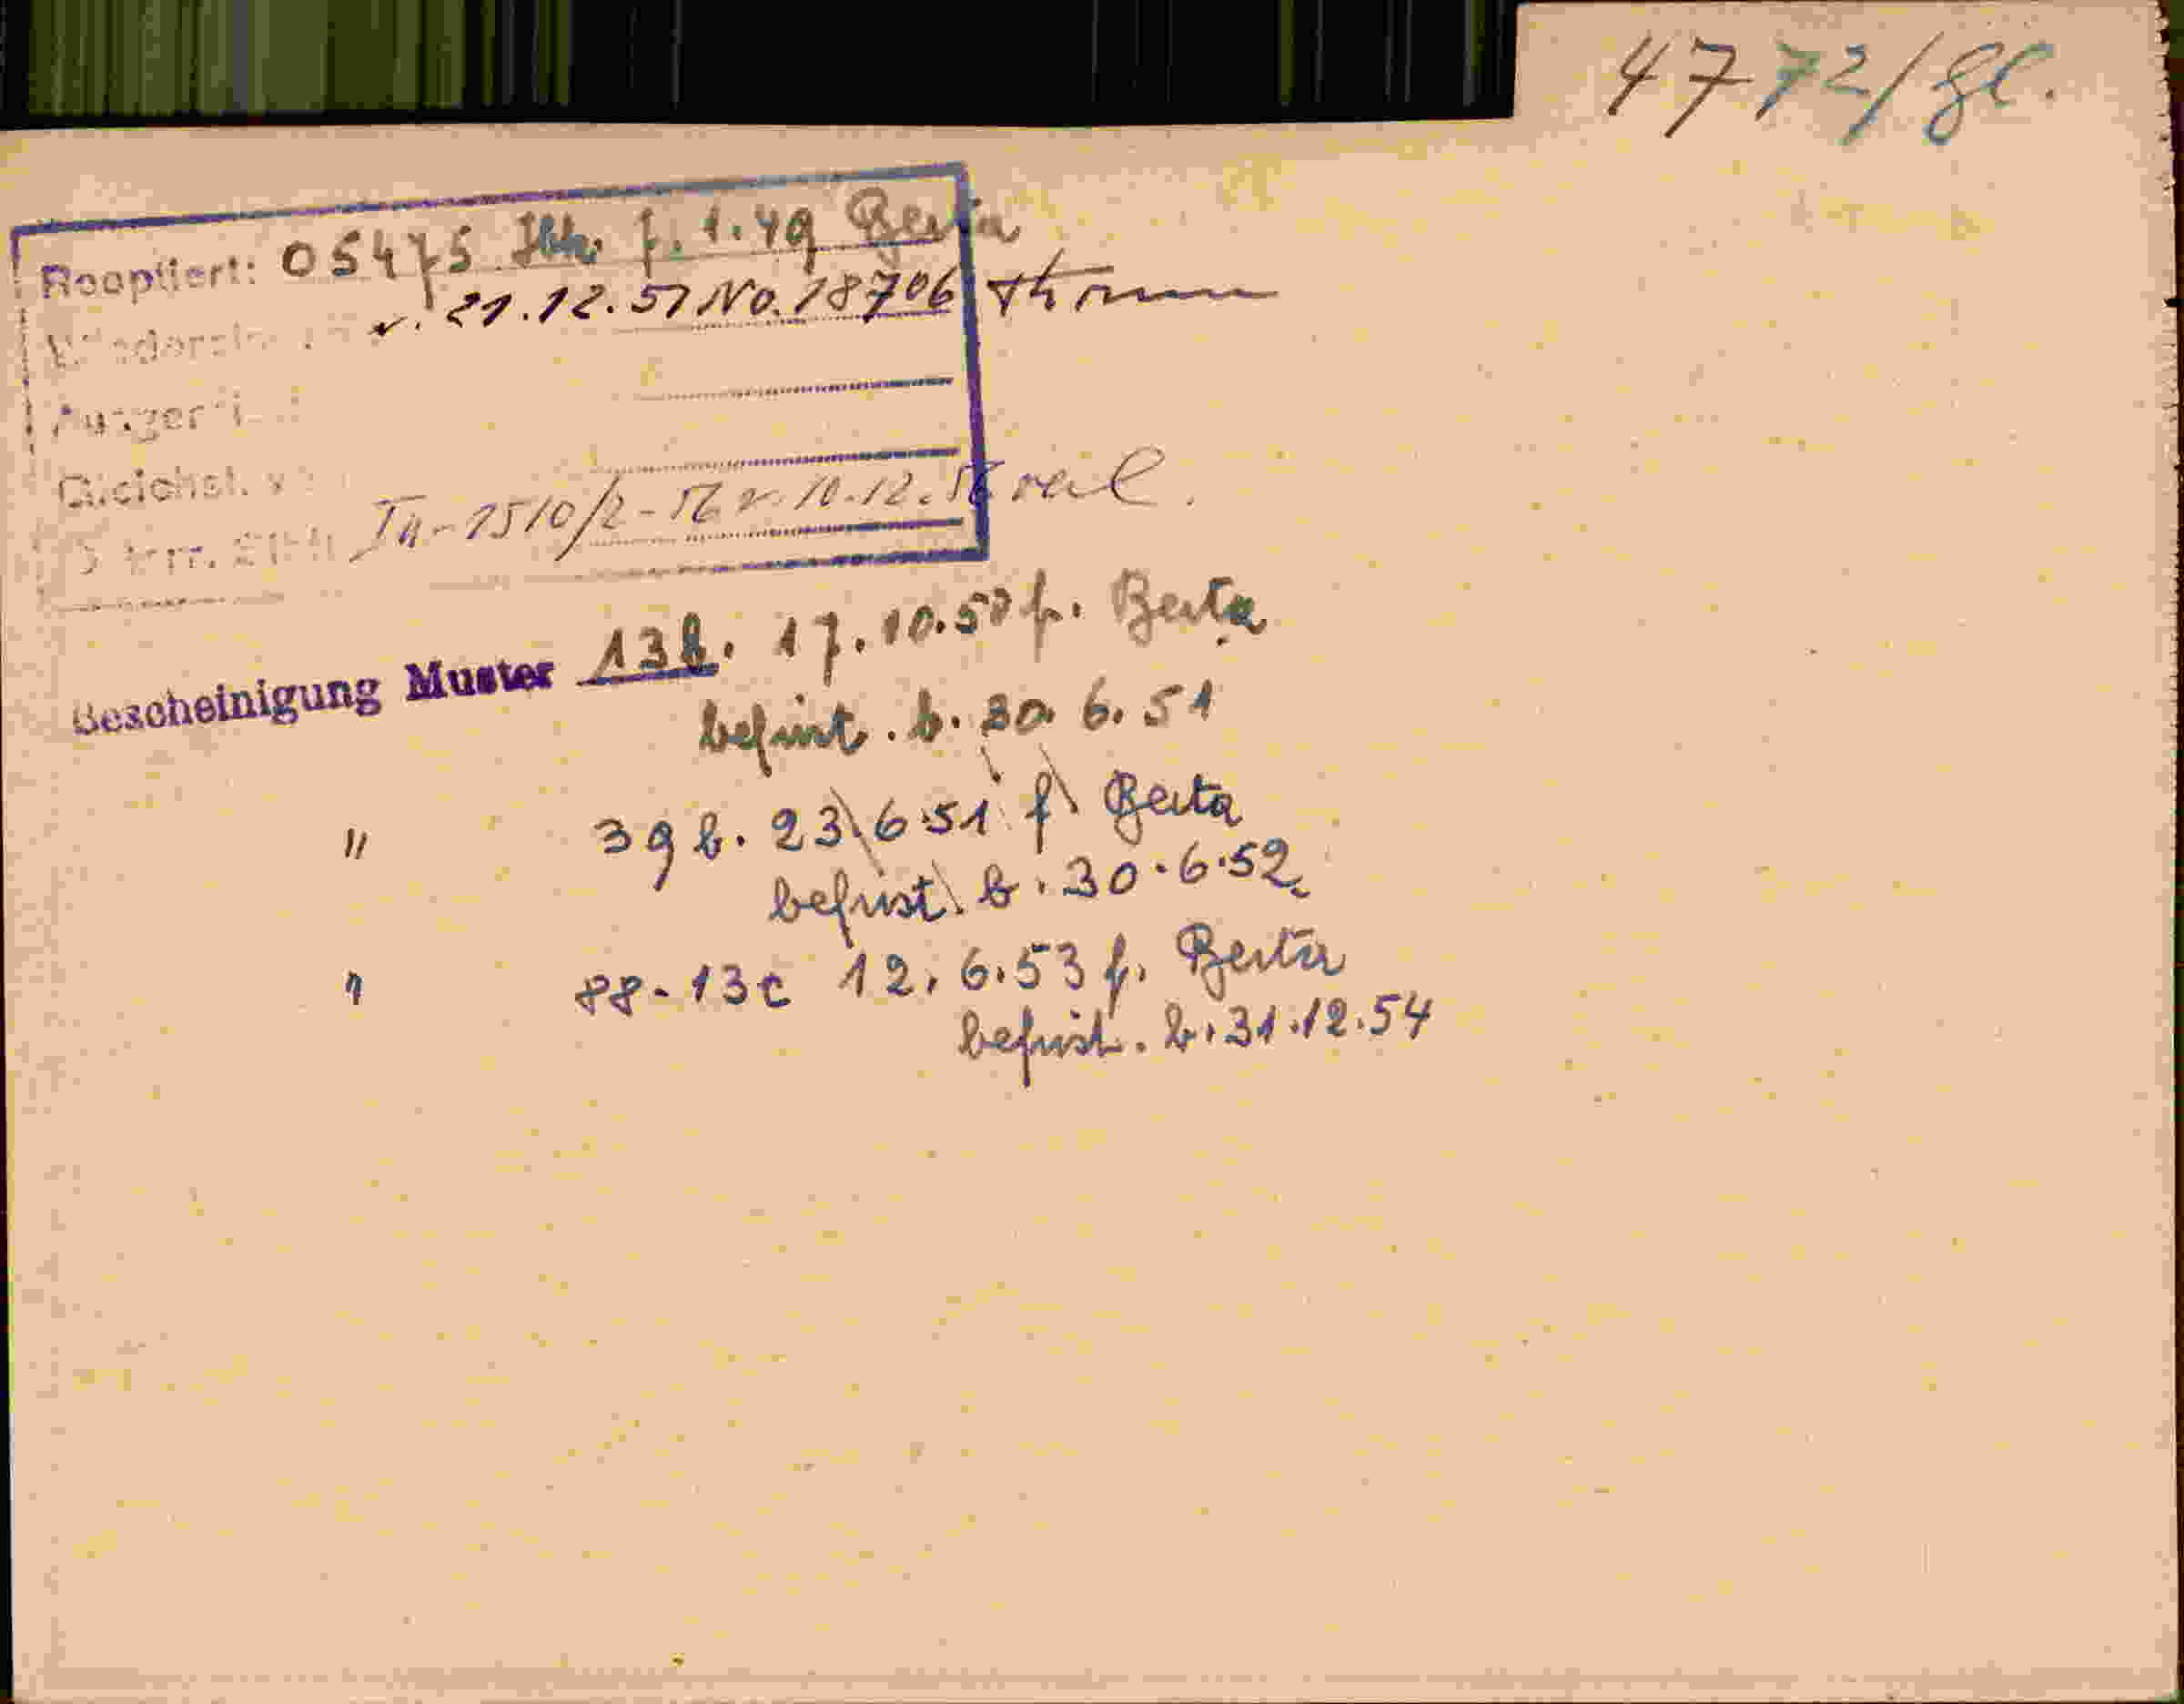 4772/gl.
Reoptiert: 05475 f. 1.49 Berta
v. 21.12.51 No. 18706
Gleichst.
1510/2-56 v. 10.12.56
Bescheinigung Muster 13b. 17.10.50 f. Berta
befrist. b. 30. 6. 51
" 39 b. 23 6.51 f Berta
befrist. b. 30.6.52
" 88-13c 12. 6.53 f. Berta
befrist. b. 31.12.54